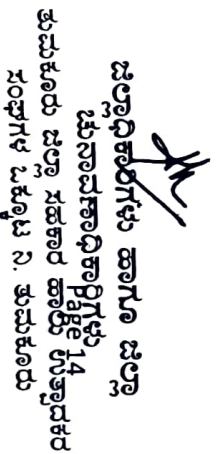 ಜಿಲ್ಲಾಧಿಕಾರಿಗಳು ಹಾಗೂ ಜಿಲ್ಲಾ
ಚುನಾವಣಾಧಿಕಾರಿಗಳು
page 14
ತುಮಕೂರು ಜಿಲ್ಲಾ ಸಹಕಾರ ಹಾಲು ಉತ್ಪಾದಕರ
ಸಂಘಗಳ ಒಕ್ಕೂಟ ನಿ. ತುಮಕೂರು